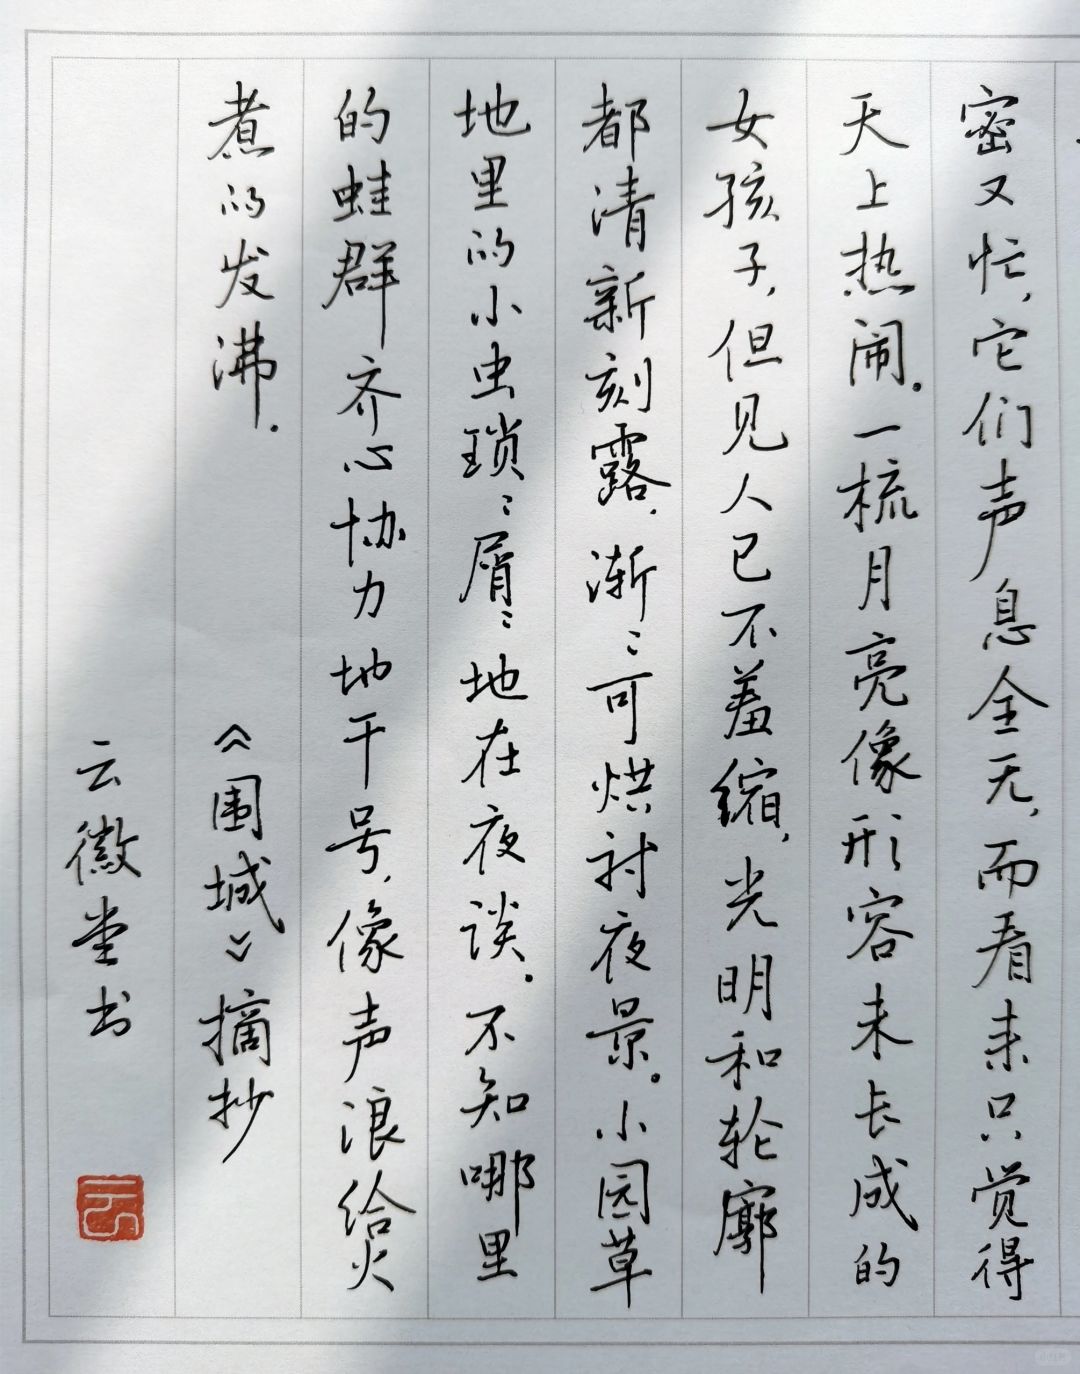 密又忙，它们声息全无，而看来只觉得
天上热闹。一梳月亮像形容未长成的
女孩子，但见人已不羞缩，光明和轮廓
都清新刻露，渐〻可烘衬夜景。小园草
地里的小虫琐〻屑〻地在夜谈。不知哪里
的蛙群齐心协力地干号，像声浪给火
煮的发沸．
《围城》摘抄
云徽堂书